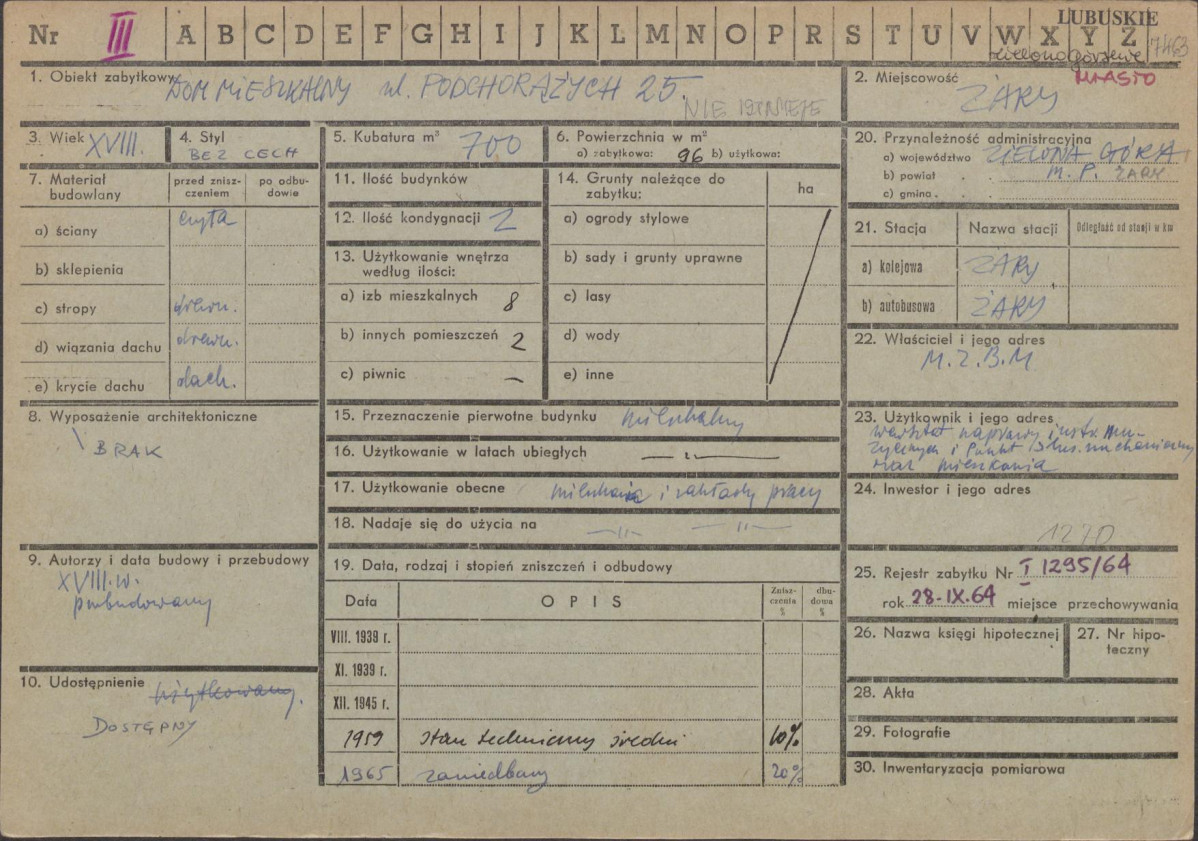 Nr III A B C D E F G H I J K L M N O P R S T U V W X Y Z
LUBUSKIE
7463
1. Obiekt zabytkowy DOM MIESZKALNY ul. PODCHORĄŻYCH 25.
NIE ISTNIEJE
2. Miejscowość MIASTO
ŻARY
3. Wiek XVIII.
4. Styl
BEZ CECH
5. Kubatura m³ 700
6. Powierzchnia w m²
a) zabytkowa: 96 b) użytkowa:
7. Materiał budowlany
przed zniszczeniem
po odbudowie
a) ściany cegła
b) sklepienia
c) stropy drewn.
d) wiązania dachu drewn.
e) krycie dachu dach.
8. Wyposażenie architektoniczne
BRAK
9. Autorzy i data budowy i przebudowy
XVIII.w.
przebudowany
10. Udostępnienie użytkowany.
DOSTĘPNY
11. Ilość budynków
12. Ilość kondygnacji 2
13. Użytkowanie wnętrza
według ilości:
a) izb mieszkalnych 8
b) innych pomieszczeń 2
c) piwnic —
14. Grunty należące do
zabytku:
ha
a) ogrody stylowe
b) sady i grunty uprawne
c) lasy
d) wody
e) inne
15. Przeznaczenie pierwotne budynku mieszkalny
16. Użytkowanie w latach ubiegłych —"—
17. Użytkowanie obecne mieszkania i zakłady pracy
18. Nadaje się do użycia na —"— —"—
19. Data, rodzaj i stopień zniszczeń i odbudowy
Data OPIS Zniszczenia % dbudowa %
VIII. 1939 r.
XI. 1939 r.
XII. 1945 r.
1959 stan techniczny średni 10%
1965 zaniedbany 20%
20. Przynależność administracyjna
a) województwo ZIELONA GÓRA
b) powiat M. P. ŻARY
c) gmina
21. Stacja Nazwa stacji Odległość od stacji w km
a) kolejowa ŻARY
b) autobusowa ŻARY
22. Właściciel i jego adres
M.Z.B.M
23. Użytkownik i jego adres
warsztat naprawy instr. mu-
zycznych i Punkt
oraz mieszkania
24. Inwestor i jego adres
1270
25. Rejestr zabytku Nr I 1295/64
rok 28-IX.64 miejsce przechowywania
26. Nazwa księgi hipotecznej
27. Nr hipo-
teczny
28. Akta
29. Fotografie
30. Inwentaryzacja pomiarowa